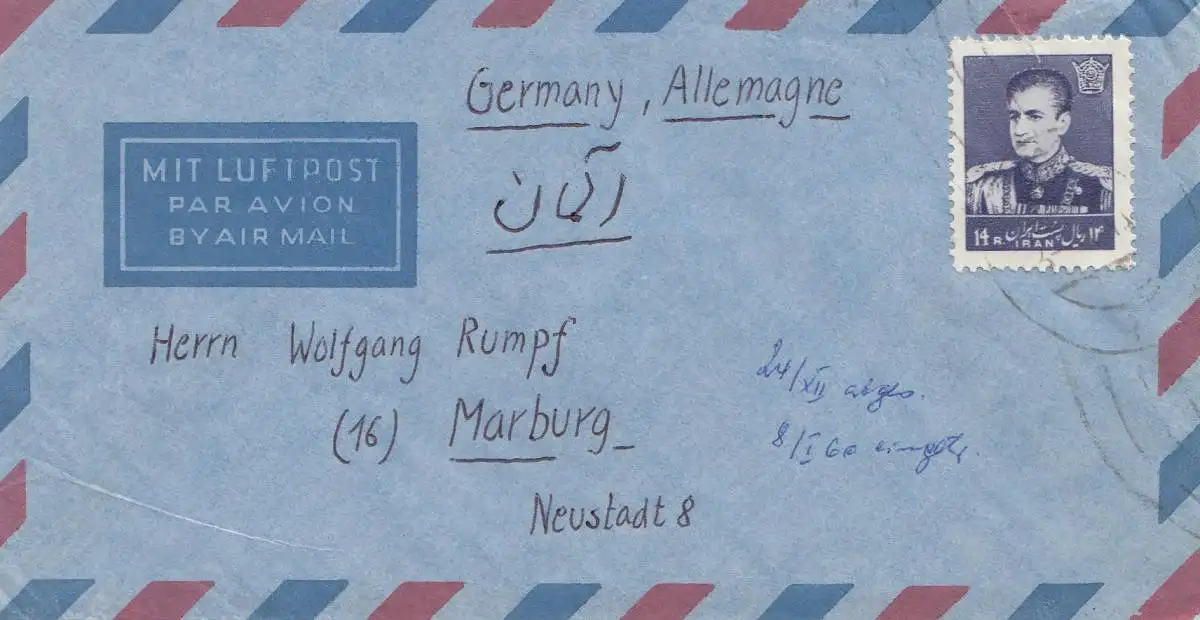 Germany, Allemagne
آلمان
MIT LUFTPOST
PAR AVION
BY AIR MAIL
۱۴ ریال پست ایران
14 R. IRAN
Herrn Wolfgang Rumpf
(16) Marburg
Neustadt 8
24/XII abges.
8/I 60